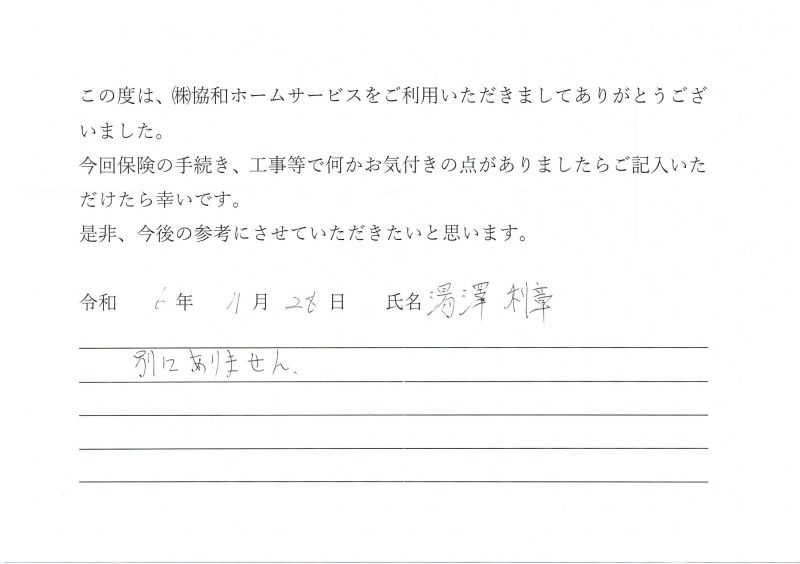 この度は、㈱協和ホームサービスをご利用いただきましてありがとうござ
いました。
今回保険の手続き、工事等で何かお気付きの点がありましたらご記入いた
だけたら幸いです。
是非、今後の参考にさせていただきたいと思います。
令和 6年 11月 28日 氏名 湯澤 利章
別にありません.